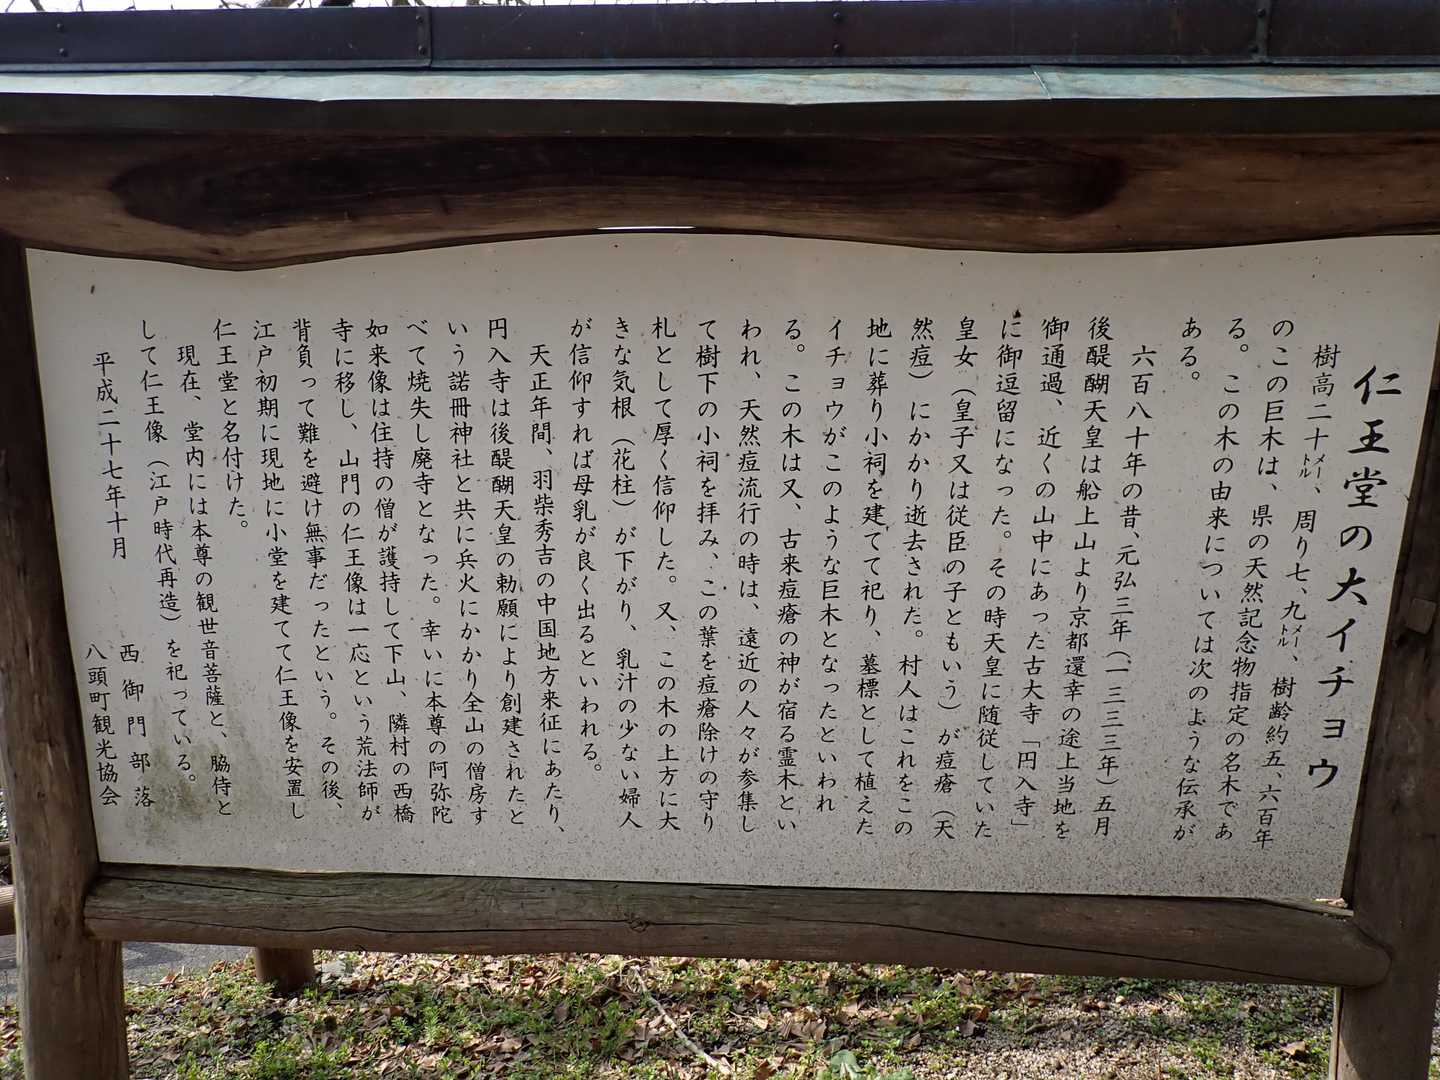 仁王堂の大イチョウ
樹高二十メートル、周り七、九メートル、樹齢約五、六百年
のこの巨木は、県の天然記念物指定の名木であ
る。この木の由来については次のような伝承が
ある。
六百八十年の昔、元弘三年(一三三三年)五月
後醍醐天皇は船上山より京都還幸の途上当地を
御通過、近くの山中にあった古大寺「円入寺」
に御逗留になった。その時天皇に随従していた
皇女(皇子又は従臣の子ともいう)が痘瘡(天
然痘)にかかり逝去された。村人はこれをこの
地に葬り小祠を建てて祀り、墓標として植えた
イチョウがこのような巨木となったといわれ
る。この木は又、古来痘瘡の神が宿る霊木とい
われ、天然痘流行の時は、遠近の人々が参集し
て樹下の小祠を拝み、この葉を痘瘡除けの守り
札として厚く信仰した。又、この木の上方に大
きな気根(花柱)が下がり、乳汁の少ない婦人
が信仰すれば母乳が良く出るといわれる。
天正年間、羽柴秀吉の中国地方来征にあたり、
円入寺は後醍醐天皇の勅願により創建されたと
いう諾冊神社と共に兵火にかかり全山の僧房す
べて焼失し廃寺となった。幸いに本尊の阿弥陀
如来像は住持の僧が護持して下山、隣村の西橋
寺に移し、山門の仁王像は一応という荒法師が
背負って難を避け無事だったという。その後、
江戸初期に現地に小堂を建てて仁王像を安置し
仁王堂と名付けた。
現在、堂内には本尊の観世音菩薩と、脇侍と
して仁王像(江戸時代再造)を祀っている。
平成二十七年十月
西御門部落
八頭町観光協会